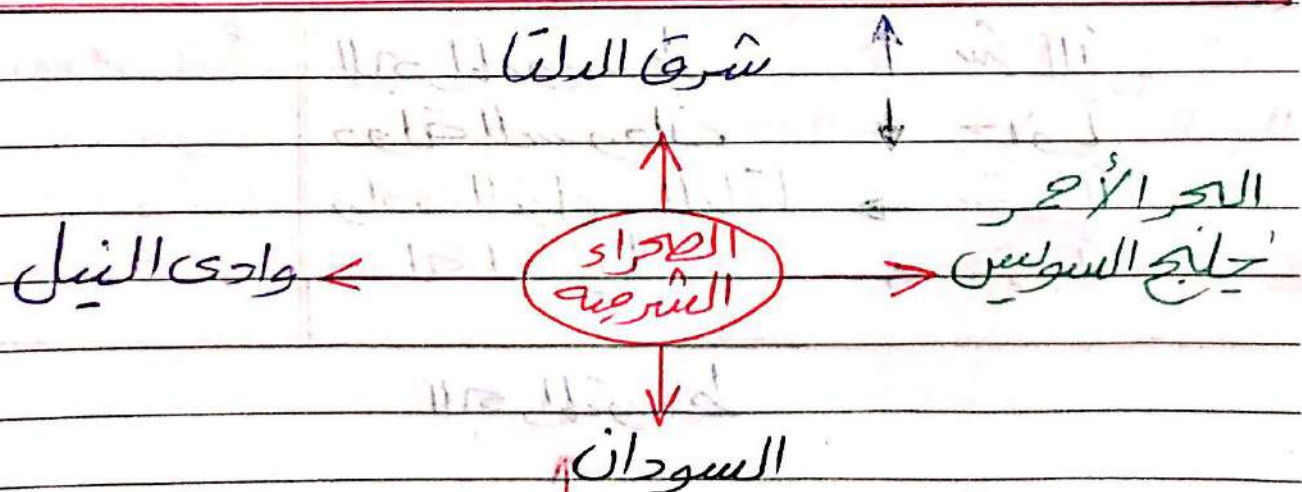 شرق الدلتا
البحر الأحمر
خليج السويس
الصحراء
الشرقيه
وادى النيل
السودان